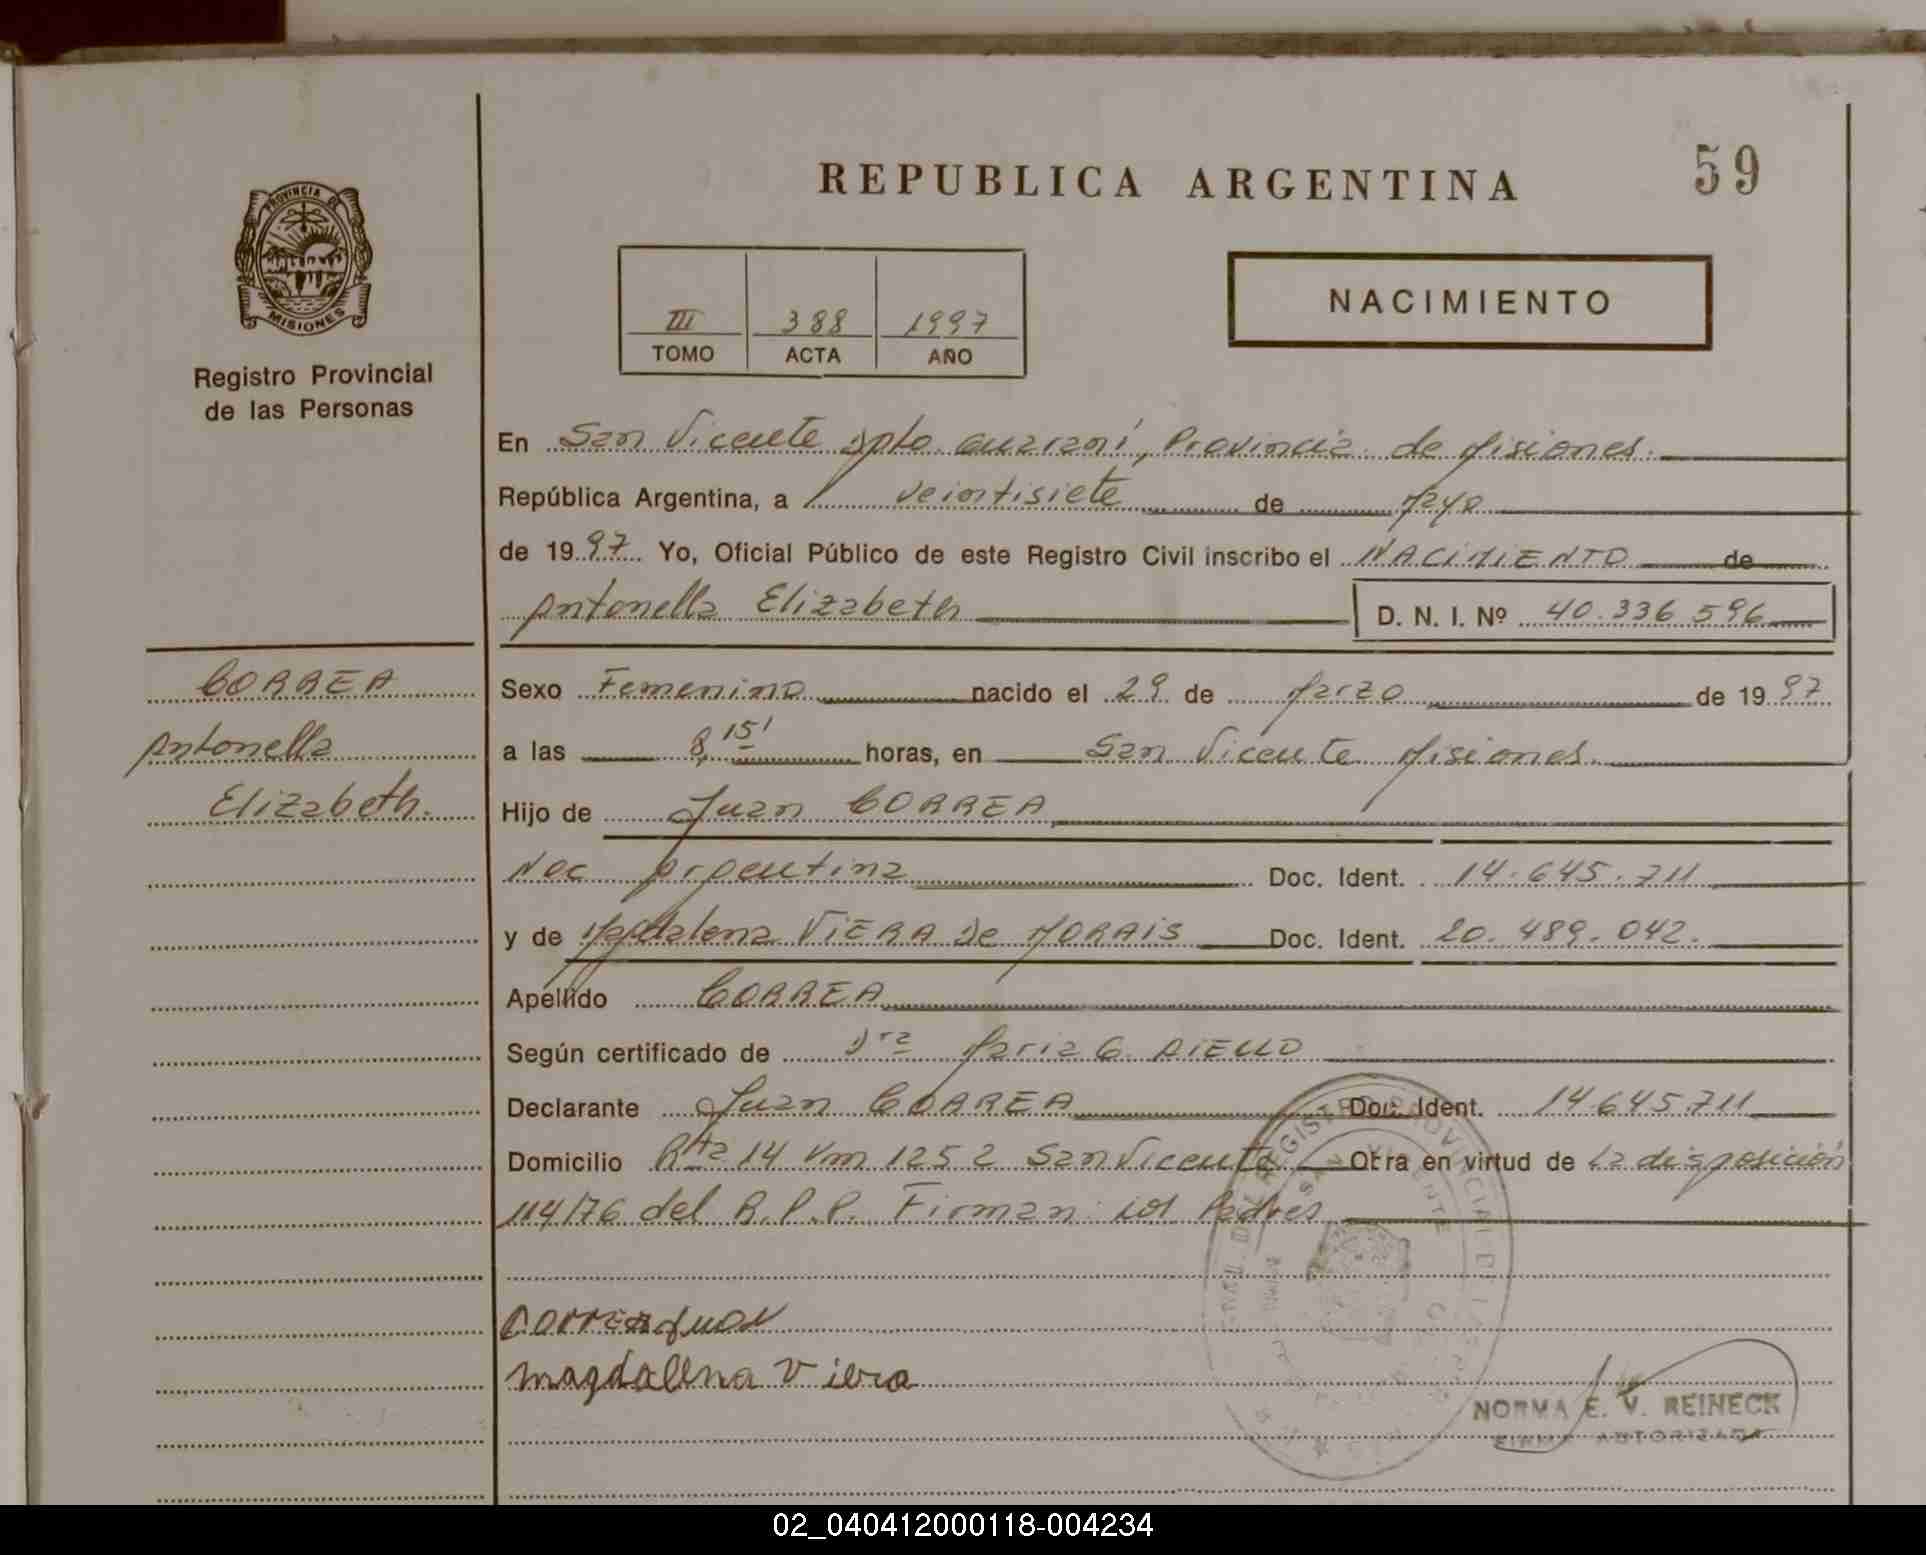 59
REPUBLICA ARGENTINA
PROVINCIA DE
MISIONES
Registro Provincial
de las Personas
III 388 1997
TOMO ACTA AÑO
NACIMIENTO
En San Vicente Dpto Guaraní, Provincia de Misiones.
República Argentina, a veintisiete de Mayo
de 1997 Yo, Oficial Público de este Registro Civil inscribo el NACIMIENTO de
Antonella Elizabeth D. N. I. Nº 40.336.596
CORREA
Antonella
Elizabeth.
Sexo Femenino nacido el 29 de Marzo de 1997
a las 8,15' horas, en San Vicente Misiones.
Hijo de Juan CORREA,
Nac Argentina Doc. Ident. 14.645.711
y de Magdalena VIERA De MORAIS Doc. Ident. 20.489.042.
Apellido CORREA
Según certificado de Dra Maria G. AIELLO
Declarante Juan CORREA Doc. Ident. 14645711
Domicilio Rta 14 Km 1252 San Vicente Obra en virtud de La disposición
114/76 del R.P.P. Firman: los Padres
Correa Juan
magdalena Viera
SAN VICENTE
NORMA E. V. REINECK
FIRMA AUTORIZADA
02_040412000118-004234